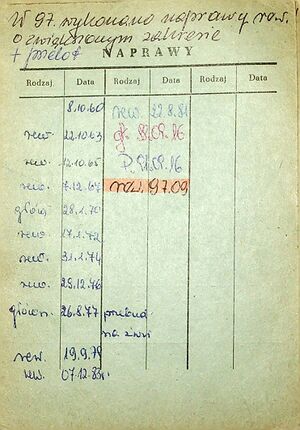 W 97. wykonano naprawy rew.
o zwiększonym zakresie
+ przelot
NAPRAWY
Rodzaj Data Rodzaj Data
8.10.60 rew. 22.8.81
rew. 22.10.63 gł.
rew. 12.10.65 P.
rew. 7.12.67 rew. 97.09
główn 28.2.70
rew. 17.1.72
rew. 31.1.74
rew. 29.12.76
główn. 26.8.77
na
rew. 19.9.79
rew. 07.12.83r.